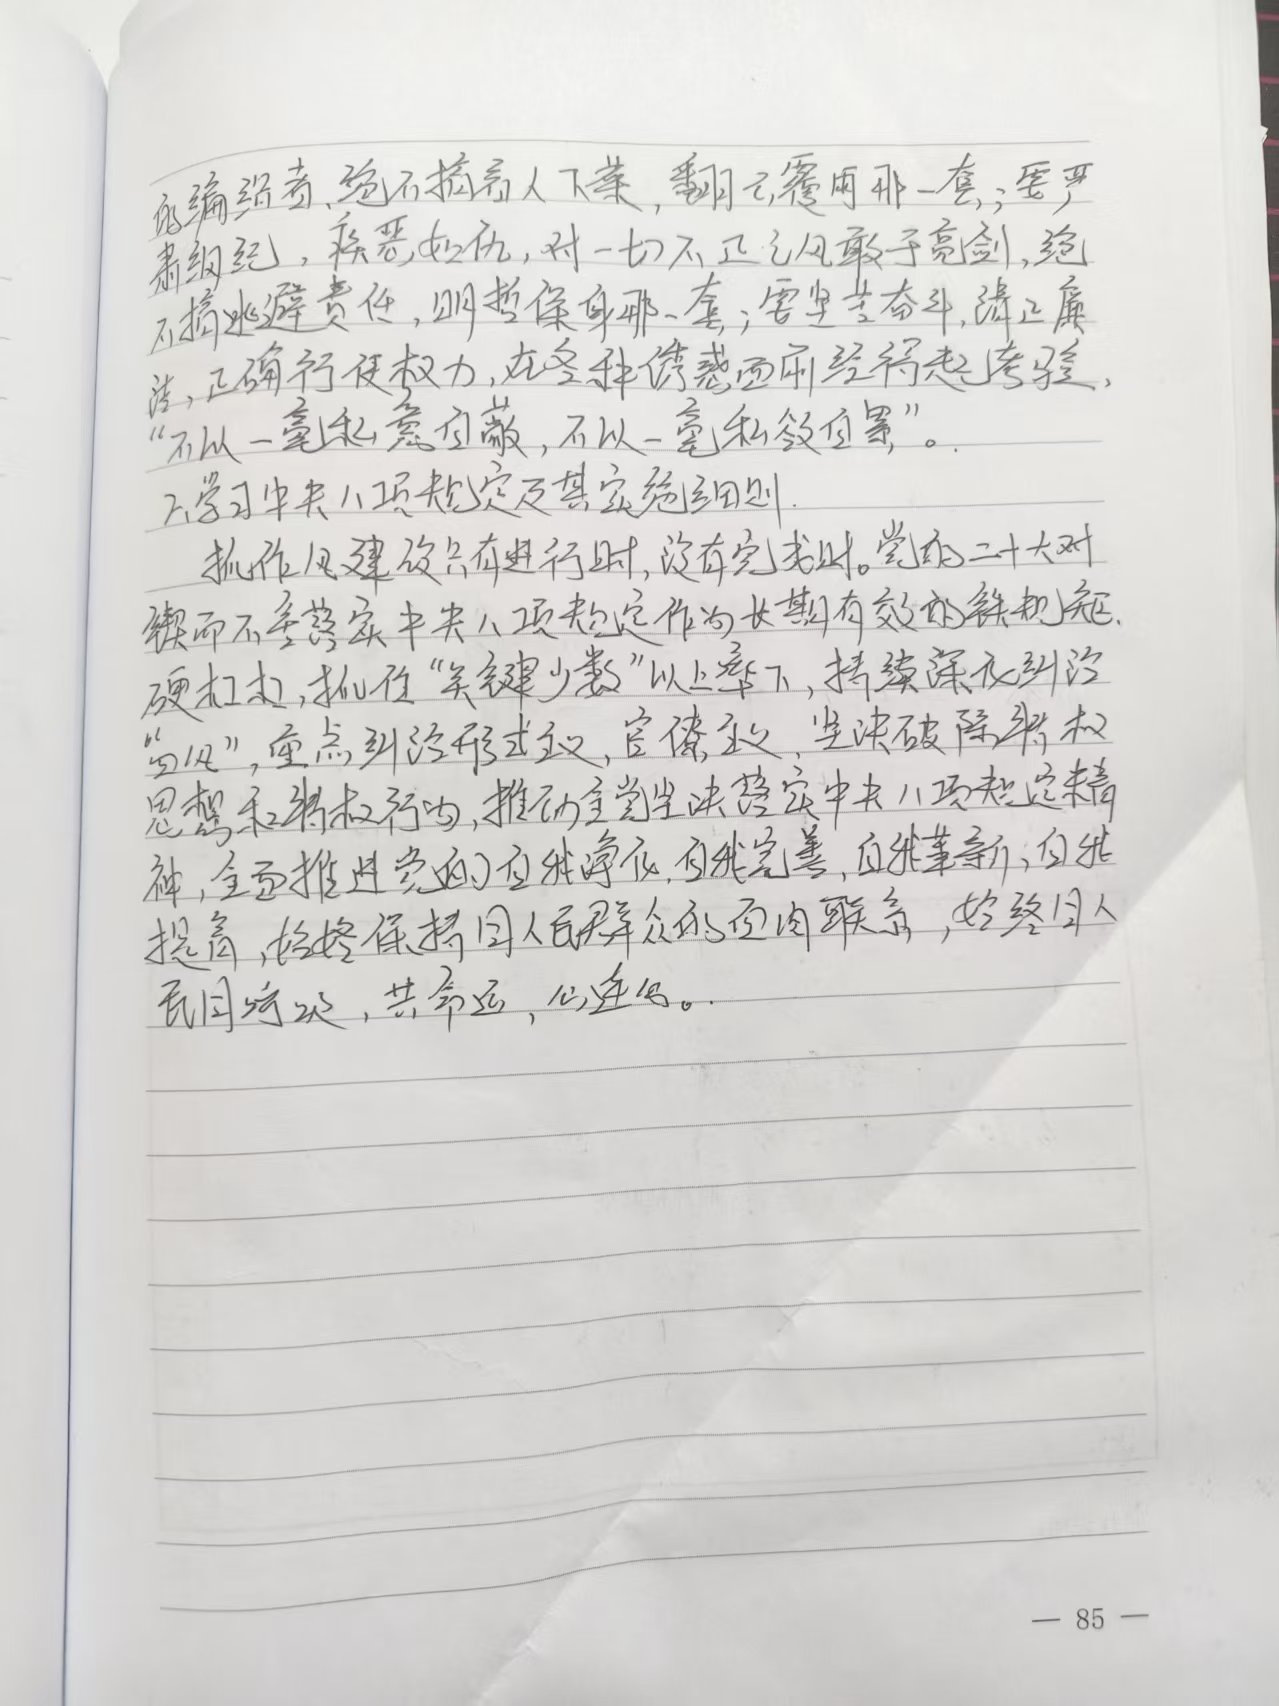 的编织者、绝不搞看人下菜，翻云覆雨那一套；要严
肃纲纪，疾恶如仇，对一切不正之风敢于亮剑，绝
不搞逃避责任，明哲保身那一套；要坚苦奋斗，清正廉
洁，正确行使权力，在各种诱惑面前经得起考验，
“不以一毫私意自蔽，不以一毫私欲自累”。
2、学习中央八项规定及其实施细则.
抓作风建设只有进行时，没有完成时。党的二十大对
锲而不舍落实中央八项规定作为长期有效的铁规矩.
硬杠杠，抓住“关键少数”以上率下，持续深化纠治
“四风”，重点纠治形式主义、官僚主义，坚决破除特权
思想和特权行为，推动全党坚决落实中央八项规定精
神，全面推进党的自我净化，自我完善，自我革新，自我
提高，始终保持同人民群众的血肉联系，始终同人
民同呼吸，共命运，心连心。
— 85 —